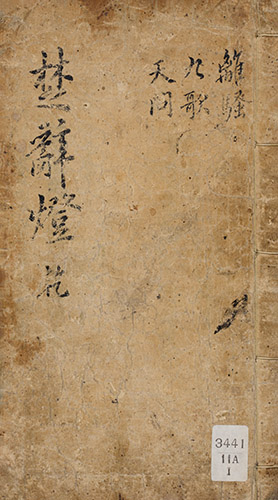 離騷
九歌
天問
楚辭燈 乾
3441
11A
1